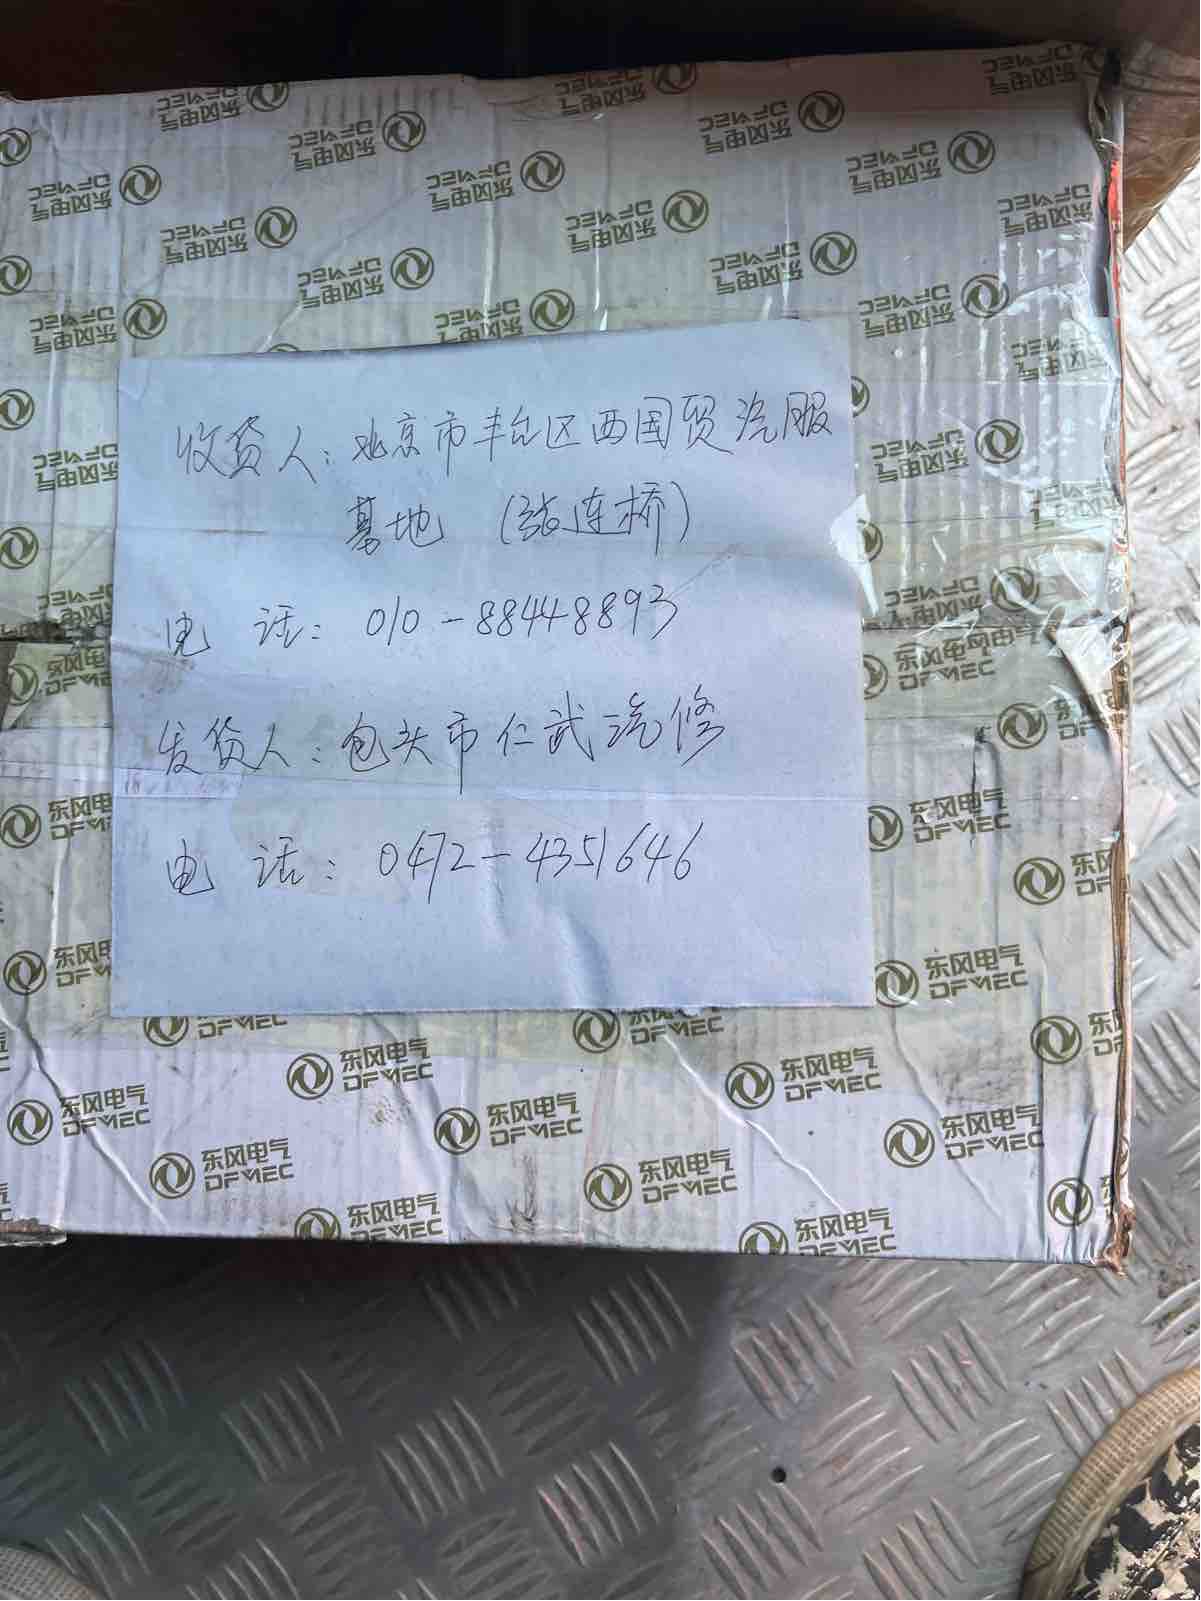 收货人：北京市丰台区西国贸汽服
基地（张连桥）
电 话：010-88448893
发货人：包头市仁武汽修
电 话：0472-4351646
东风电气
DFMEC